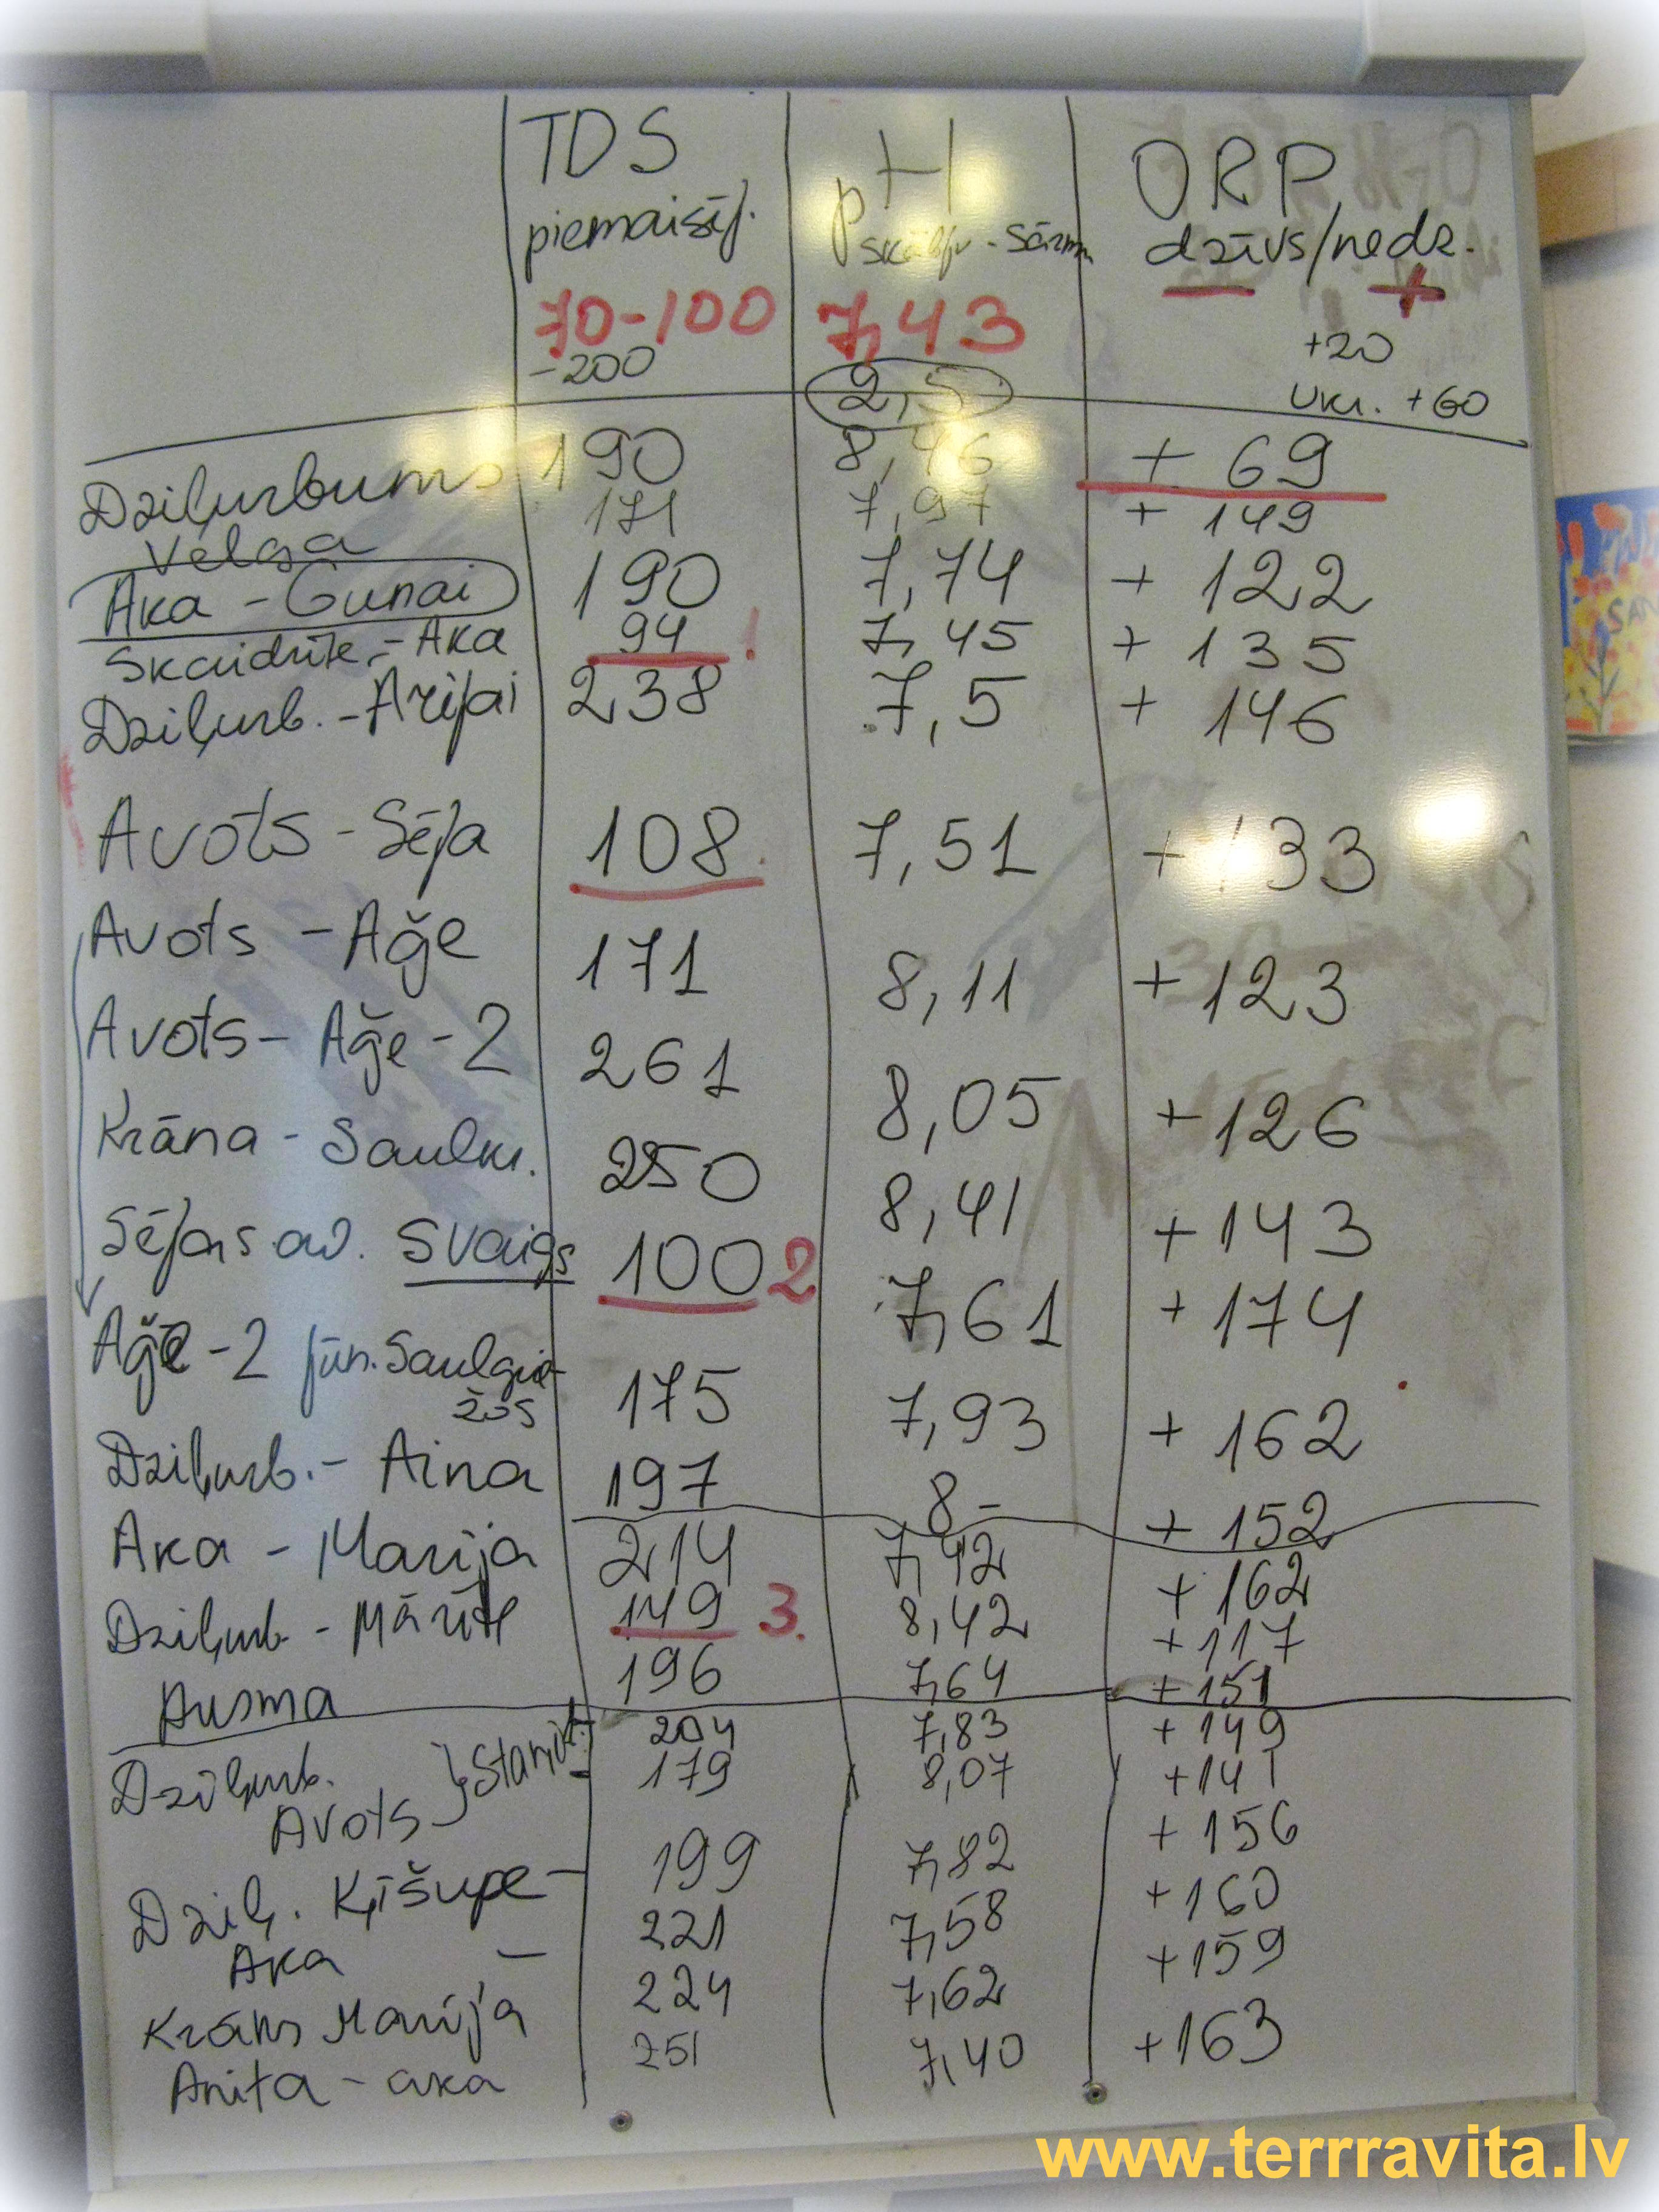 TDS pH ORP
piemaisīj. skābju - sārmu dzīvs/nedz.
70-100 7,43 - +
-200 2,5 +20
ukr. +60
Dziļurbums 190 8,46 + 69
Velga 171 7,97 + 149
Aka - Gunai 190 7,74 + 122
Skaidrīte - Aka 94 ! 7,45 + 135
Dziļurb. - Arijai 238 7,5 + 146
Avots - Sēja 108 7,51 + 133
Avots - Aģe 171 8,11 + 123
Avots - Aģe - 2 261 8,05 + 126
Krāna - Saulkr. 250 8,41 + 143
Sējas av. svaigs 100 2 7,61 + 174
Aģe - 2 jūn. Saulgrie- 175 7,93 + 162
žos
Dziļurb. - Aina 197 8 - + 152
Aka - Marija 214 7,42 + 162
Dziļurb - Mārīte 149 3. 8,42 + 117
Ausma 196 7,64 + 151
Dziļurb. 204 7,83 + 149
Avots 179 8,07 + 141
Dziļ. Ķīšupe - 199 7,82 + 156
Aka - 221 7,58 + 160
Krāns Marija 224 7,62 + 159
Anita - aka 251 7,40 + 163
www.terrravita.lv